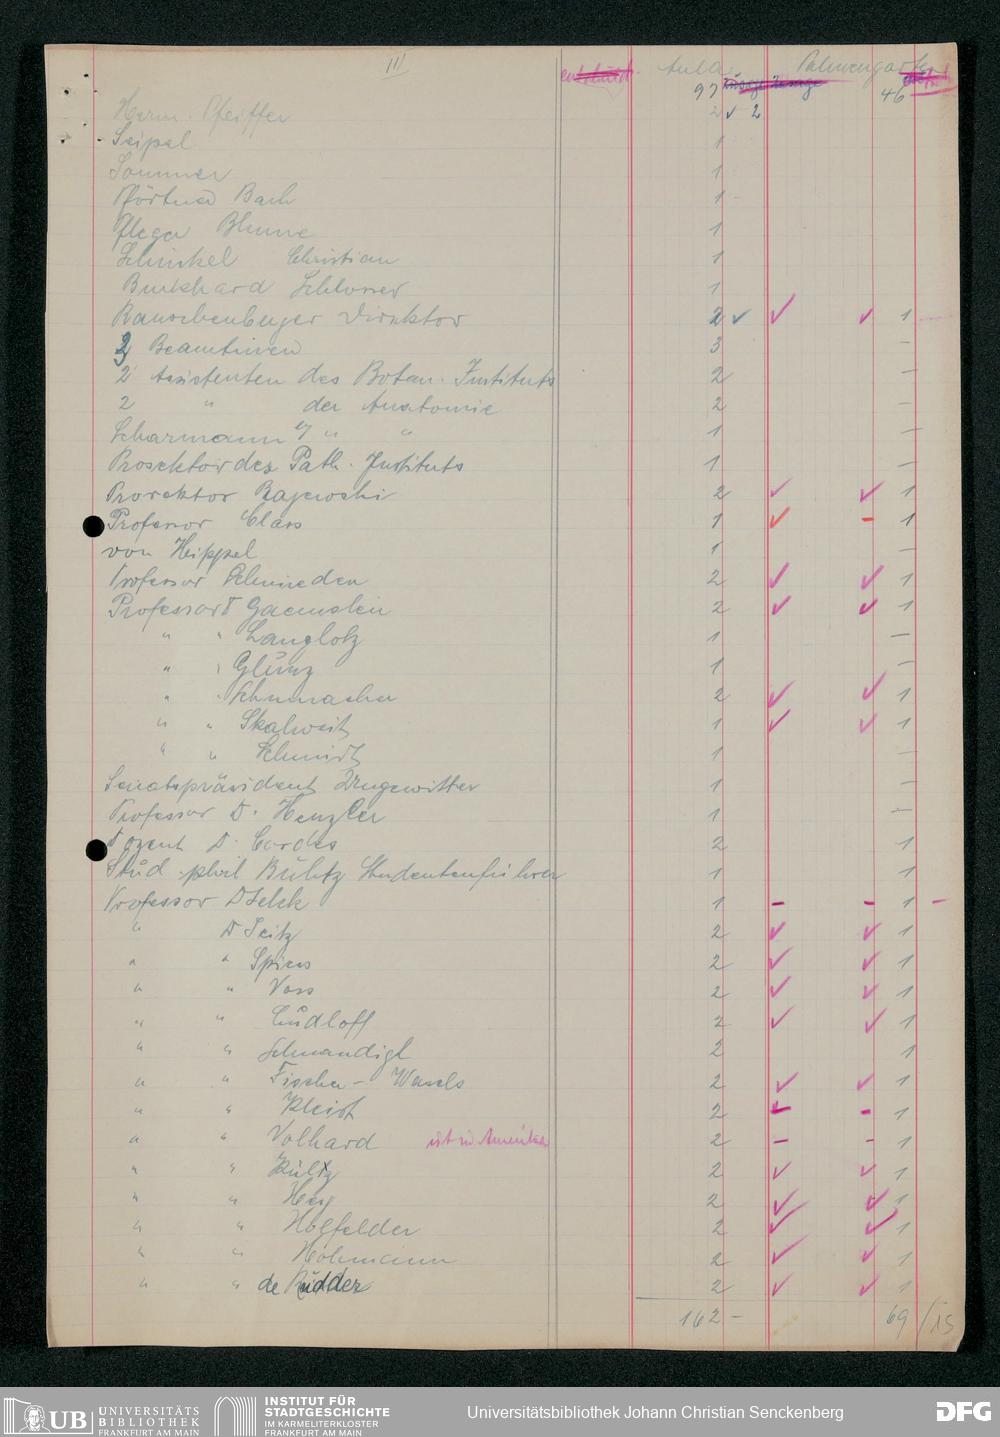 III
Aula Palmengarten
97 46
Herm. Pfeiffer 2 ✓ 2
Seipel 1
Sommer 1
Pförtner Bach 1
Pfleger Blume 1
Schinkel Christian 1
Burkhard Schlosser 1
Rauschenberger Direktor 2 ✓ ✓ ✓ 1
3 Beamtinnen 3 –
2 Assistenten des Botan. Instituts 2 –
2 " der Anatomie 2 –
Scharmann " " 1 –
Prosektor des Path. Instituts 1 –
Prorektor Rajewski 2 ✓ ✓ 1
Professor Claus 1 ✓ – 1
von Hippel 1 –
Professor Schmieden 2 ✓ ✓ 1
Professor D Gaenslen 2 ✓ ✓ 1
" " Langlotz 1 –
" " Glünz 1 –
" " Schumacher 2 ✓ ✓ 1
" " Skalweit 1 ✓ ✓ 1
" " Schmidt 1 –
Senatspräsident Ungewitter 1 –
Professor D. Henzler 1 –
Dozent D. Cordes 2 1
Stud. phil Bültz Studentenführer 1 1
Professor D Selck 1 – – 1 –
" D Seitz 2 ✓ ✓ 1
" " Spiess 2 ✓ ✓ 1
" " Voss 2 ✓ ✓ 1
" " Cudloff 2 ✓ ✓ 1
" " Schwandigl 2 1
" " Fischer – Wasels 2 ✓ ✓ 1
" " Kleist 2 – 1
" " Volhard ist in Amerika 2 – – 1
" " Külz 2 ✓ ✓ 1
" " 2 ✓ ✓ 1
" " Holfelder 2 ✓ ✓ 1
" " Hohmann 2 ✓ ✓ 1
" " de Rudder 2 ✓ ✓ 1
162 – 69 / 15
UB UNIVERSITÄTS
BIBLIOTHEK
FRANKFURT AM MAIN
INSTITUT FÜR
STADTGESCHICHTE
IM KARMELITERKLOSTER
FRANKFURT AM MAIN
Universitätsbibliothek Johann Christian Senckenberg
DFG